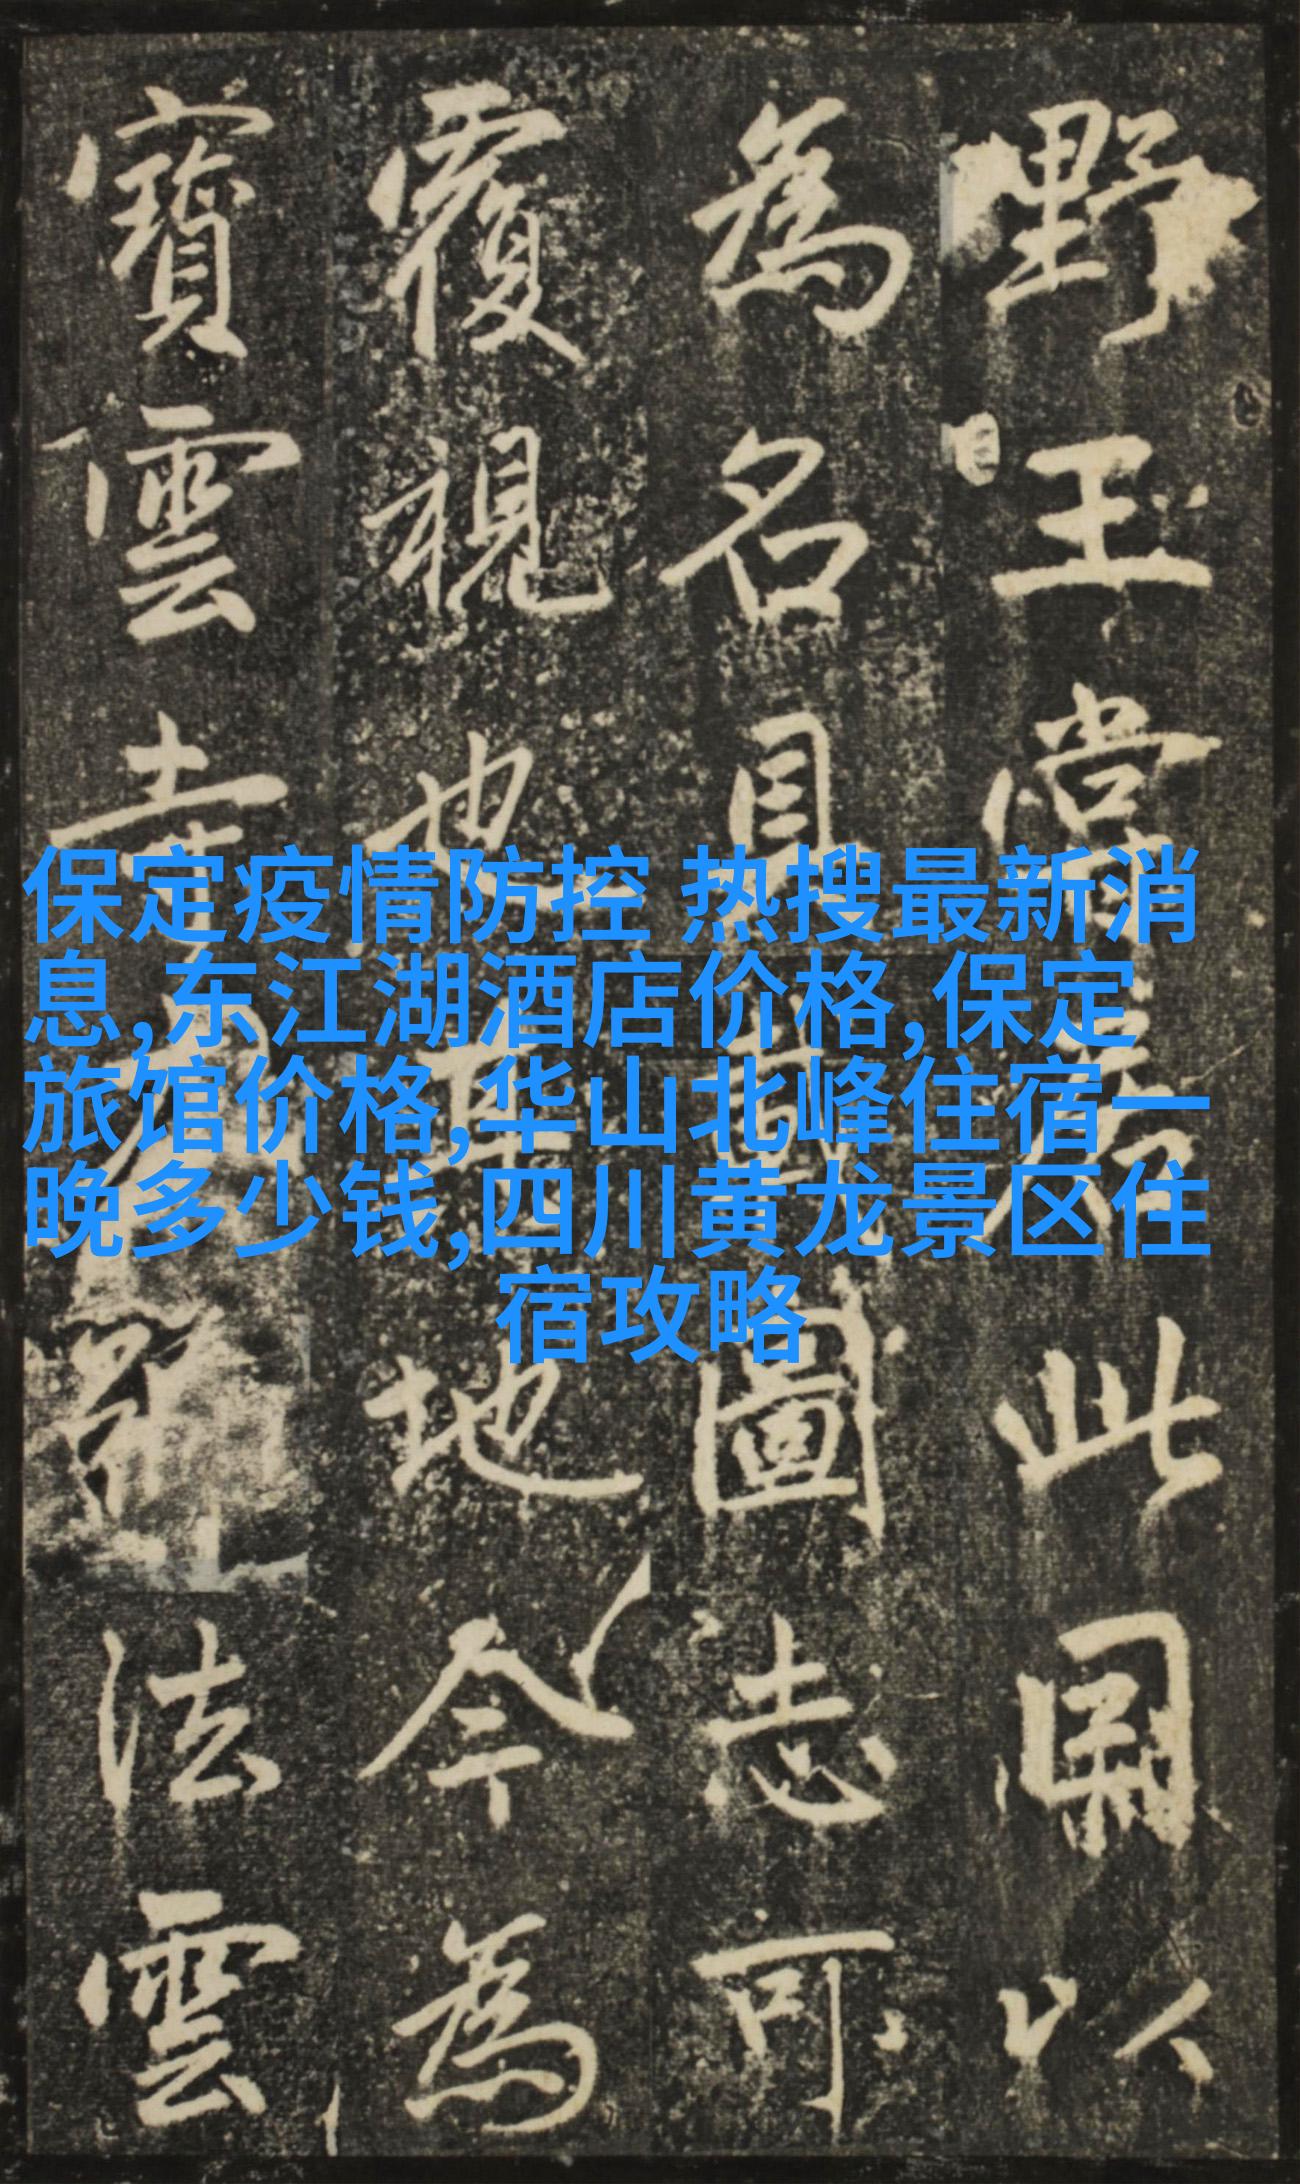 野王嘗此以
為名具載圖志可
覆視也其地今為
寶雲寺法雲
保定疫情防控 热搜最新消
息,东江湖酒店价格,保定
旅馆价格,华山北峰住宿一
晚多少钱,四川黄龙景区住
宿攻略